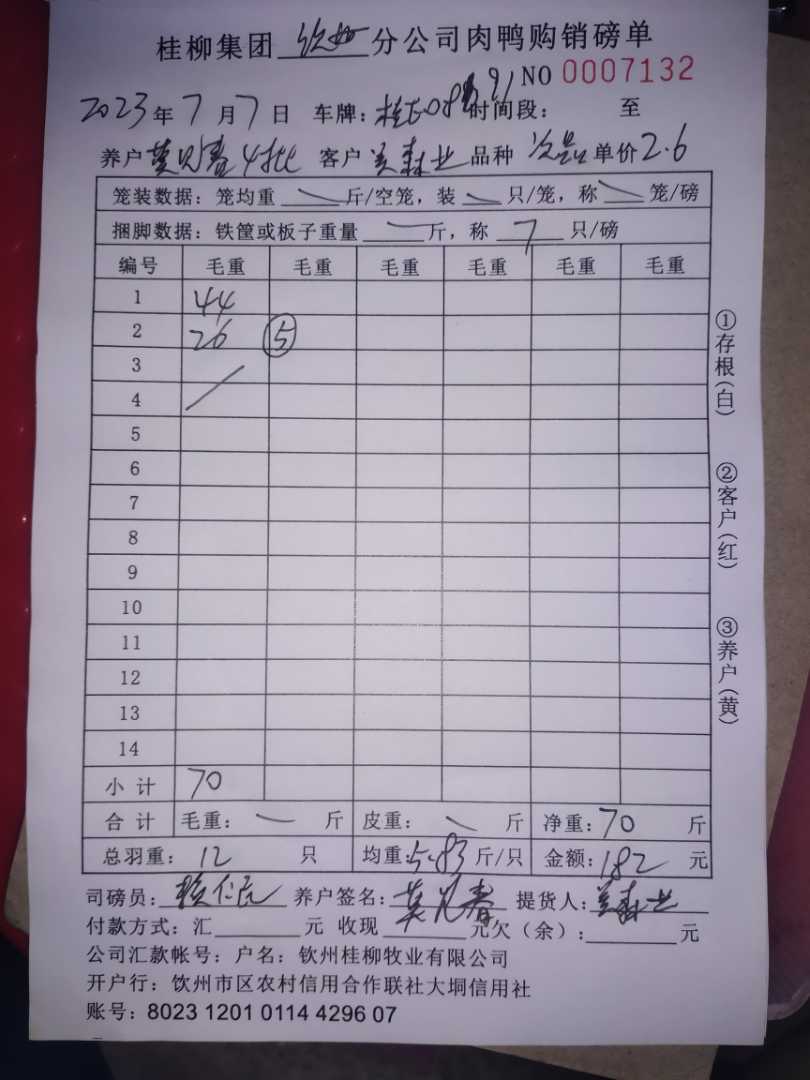 桂柳集团 钦州 分公司肉鸭购销磅单
NO 0007132
2023年7月7日 车牌: 时间段: 至
养户 莫兄春4批 客户 森业 品种 次品 单价2.6
笼装数据: 笼均重 斤/空笼, 装 只/笼, 称 笼/磅
捆脚数据: 铁筐或板子重量 斤, 称 7 只/磅
编号 毛重 毛重 毛重 毛重 毛重 毛重
1 44
2 26 ⑤
3
4
5
6
7
8
9
10
11
12
13
14
小计 70
合计 毛重: 斤 皮重: 斤 净重: 70 斤
总羽重: 12 只 均重: 5.83 斤/只 金额: 182 元
司磅员: 养户签名: 莫兄春 提货人: 森业
付款方式: 汇 元 收现 元欠(余): 元
公司汇款帐号: 户名: 钦州桂柳牧业有限公司
开户行: 钦州市区农村信用合作联社大垌信用社
账号: 8023 1201 0114 4296 07
①存根(白)
②客户(红)
③养户(黄)